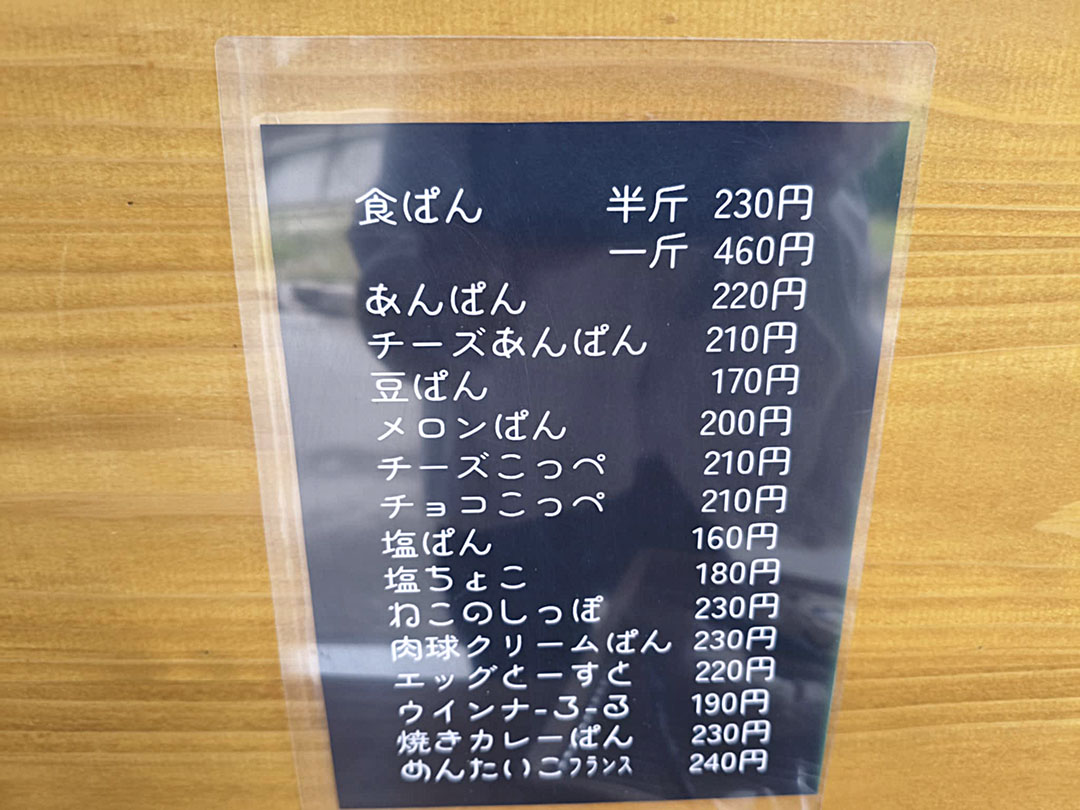 食ぱん 半斤 230円
一斤 460円
あんぱん 220円
チーズあんぱん 210円
豆ぱん 170円
メロンぱん 200円
チーズこっぺ 210円
チョコこっぺ 210円
塩ぱん 160円
塩ちょこ 180円
ねこのしっぽ 230円
肉球クリームぱん 230円
エッグとーすと 220円
ウインナ-ろ-る 190円
焼きカレーぱん 230円
めんたいこフランス 240円